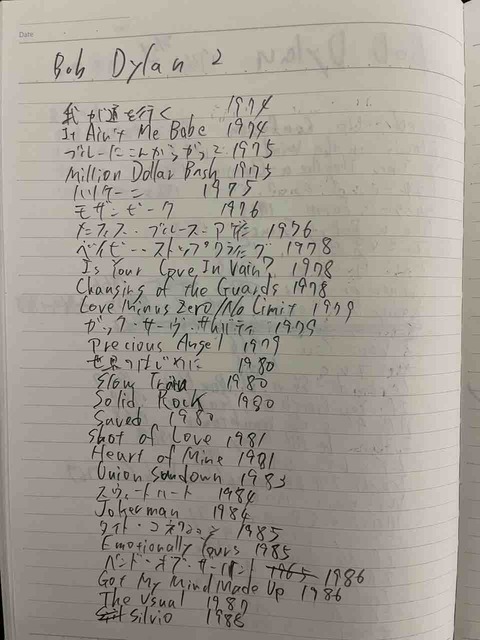 Date
Bob Dylan 2
我が道を行く 1974
It Ain't Me Babe 1974
ブルーにこんがらがって 1975
Million Dollar Bash 1975
ハリケーン 1975
モザンビーク 1976
ブルース 1976
ベイビー・ストップ・クライング 1978
Is Your Love In Vain? 1978
Changing of the Guards 1978
Love Minus Zero/No Limit 1979
ガッタ・サーヴ・サムバディ 1979
Precious Angel 1979
世界のはじめに 1980
Slow Train 1980
Solid Rock 1980
Saved 1980
Shot of Love 1981
Heart of Mine 1981
Union Sundown 1983
スウィートハート 1984
Jokerman 1984
タイト・コネクション 1985
Emotionally Yours 1985
バンド・オブ・サーバント 1986
Got My Mind Made Up 1986
The Usual 1987
Silvio 1988